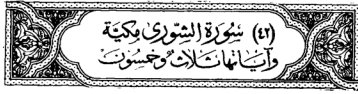 (٤٢) سُورَةُ الشُّورىٰ مَكِيَّة
وَآيَاتهَا ثَلَاثٌ وَخَمْسُونَ